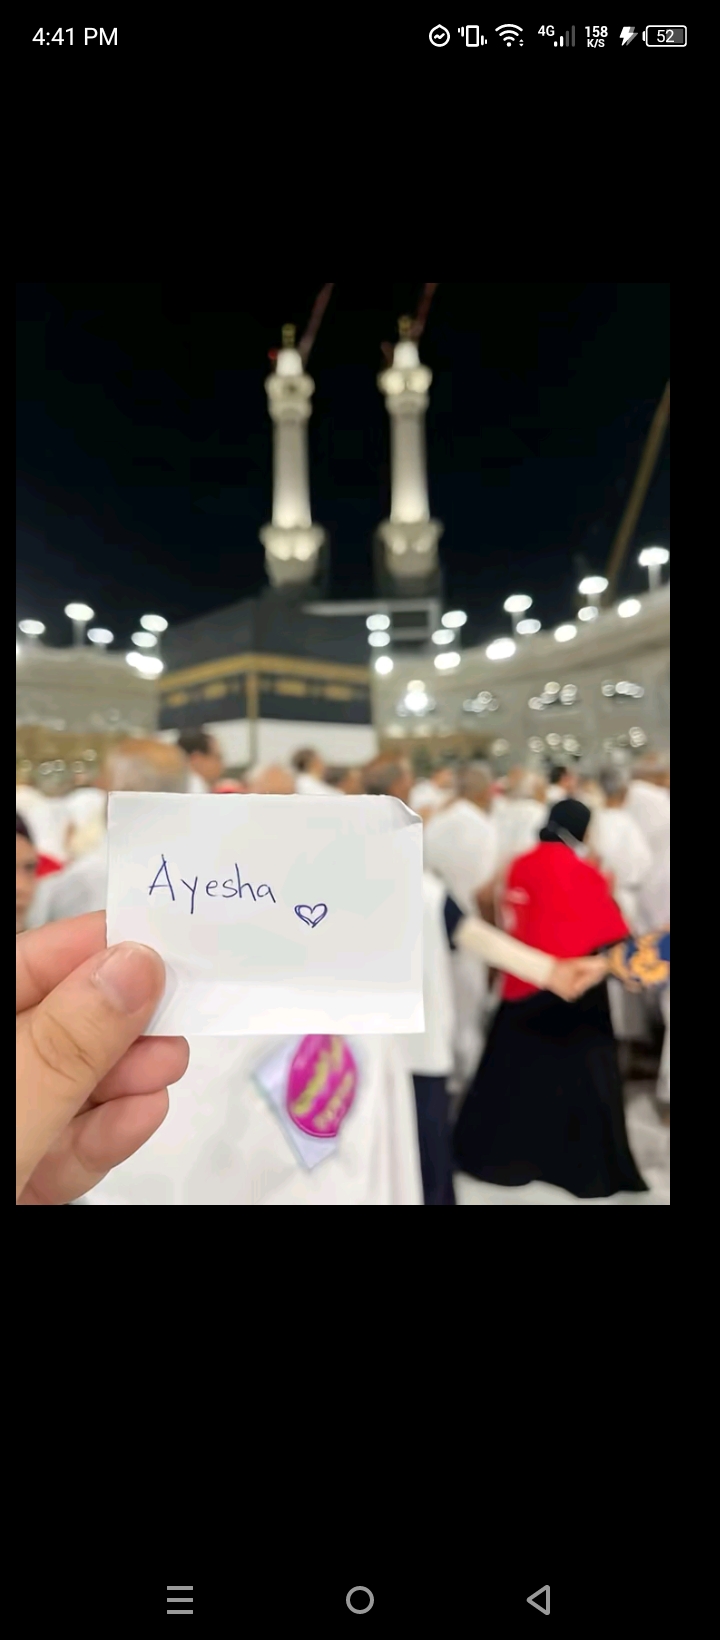 4:41 PM
4G 158 K/S 52
Ayesha